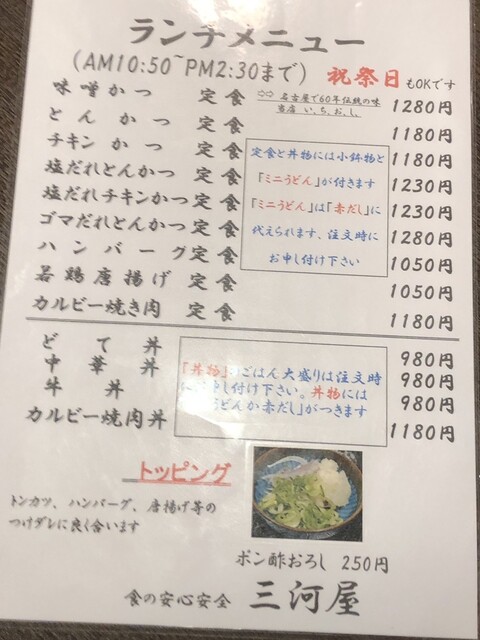 ランチメニュー
(AM10:50~PM2:30まで) 祝祭日もOKです
味噌かつ 定食 ⇨⇨ 名古屋で60年伝統の味 当店 い、ち、お、し、 1280円
とんかつ 定食 1180円
チキンかつ 定食 1180円
塩だれとんかつ 定食 1230円
塩だれチキンかつ 定食 1230円
ゴマだれとんかつ 定食 1280円
ハンバーグ 定食 1050円
若鶏唐揚げ 定食 1050円
カルビー焼き肉 定食 1180円
定食と丼物には小鉢物と
「ミニうどん」が付きます
「ミニうどん」は「赤だし」に
代えられます、注文時に
お申し付け下さい
どて丼 980円
中華丼 980円
牛丼 980円
カルビー焼肉丼 1180円
「丼物」 ごはん大盛りは注文時
し付け下さい。丼物には
うどんか赤だし」がつきます
トッピング
トンカツ、ハンバーグ、唐揚げ等の
つけダレに良く合います
ポン酢おろし 250円
食の安心安全 三河屋